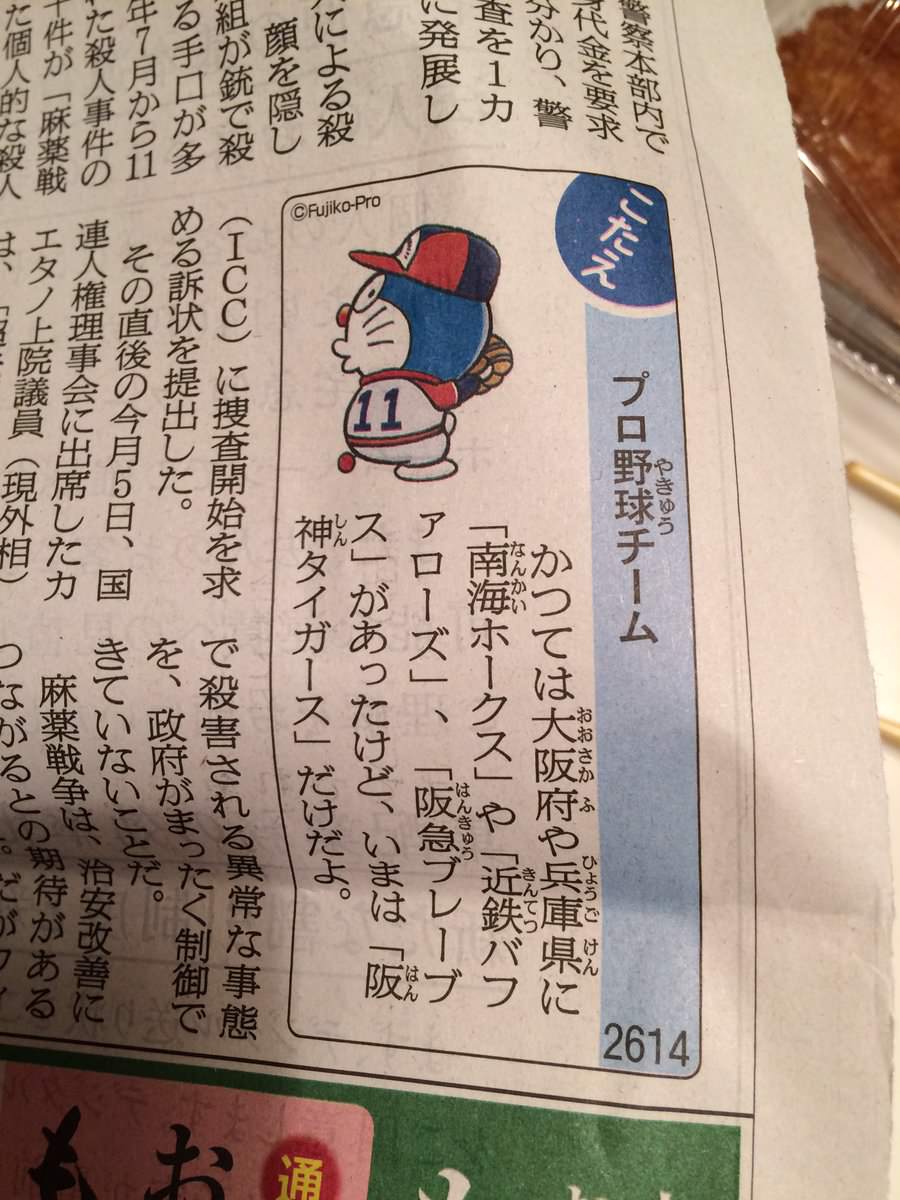 警察本部内で
身代金を要求
分かり、警
査を1カ
に発展し
による殺
顔を隠し
組が銃で殺
る手口が多
年7月から11
た殺人事件の
件が「麻薬戦
た個人的な殺人
こたえ
やきゅう
プロ野球チーム
2614
おおさか ふ ひょうご けん
かつては大阪府や兵庫県に
なんかい きんてつ
「南海ホークス」や「近鉄バフ
はんきゅう
ァローズ」、「阪急ブレーブ
はん
ス」があったけど、いまは「阪
しん
神タイガース」だけだよ。
©Fujiko-Pro
11
（ICC）に捜査開始を求
める訴状を提出した。
その直後の今月5日、国
連人権理事会に出席したカ
エタノ上院議員（現外相）
は、「
で殺害される異常な事態
を、政府がまったく制御で
きていないことだ。
麻薬戦争は、治安改善に
つながるとの期待がある
通
お
も